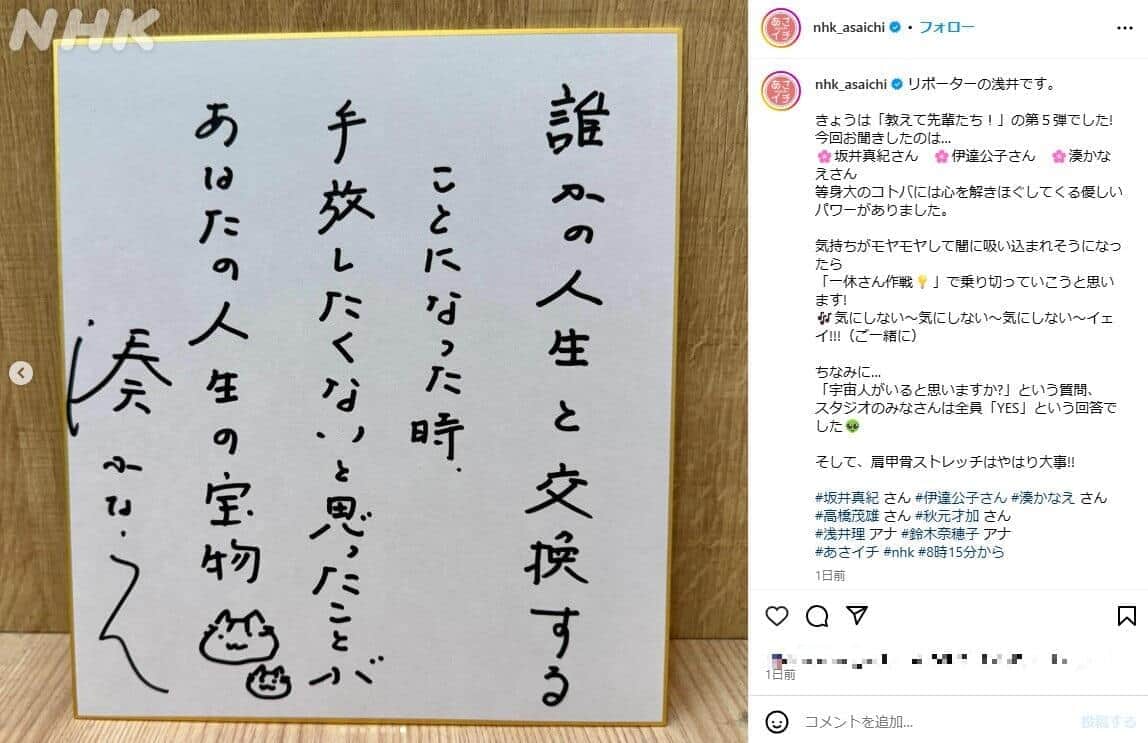 NHK
誰かの人生と交換する
ことになった時.
手放したくないと思ったことが
あなたの人生の宝物
湊かなえ
nhk_asaichi ・ フォロー
nhk_asaichi リポーターの浅井です。
きょうは「教えて先輩たち！」の第５弾でした!
今回お聞きしたのは...
🌸坂井真紀さん　🌸伊達公子さん　🌸湊かな
えさん
等身大のコトバには心を解きほぐしてくる優しい
パワーがありました。
気持ちがモヤモヤして闇に吸い込まれそうになっ
たら
「一休さん作戦💡」で乗り切っていこうと思い
ます!
🎶気にしない～気にしない～気にしない～イェ
イ!!!（ご一緒に）
ちなみに...
「宇宙人がいると思いますか?」という質問、
スタジオのみなさんは全員「YES」という回答で
した👽
そして、肩甲骨ストレッチはやはり大事!!
#坂井真紀 さん #伊達公子さん #湊かなえ さん
#高橋茂雄 さん #秋元才加 さん
#浅井理 アナ #鈴木奈穂子 アナ
#あさイチ #nhk #8時15分から
1日前
1日前
コメントを追加...
投稿する